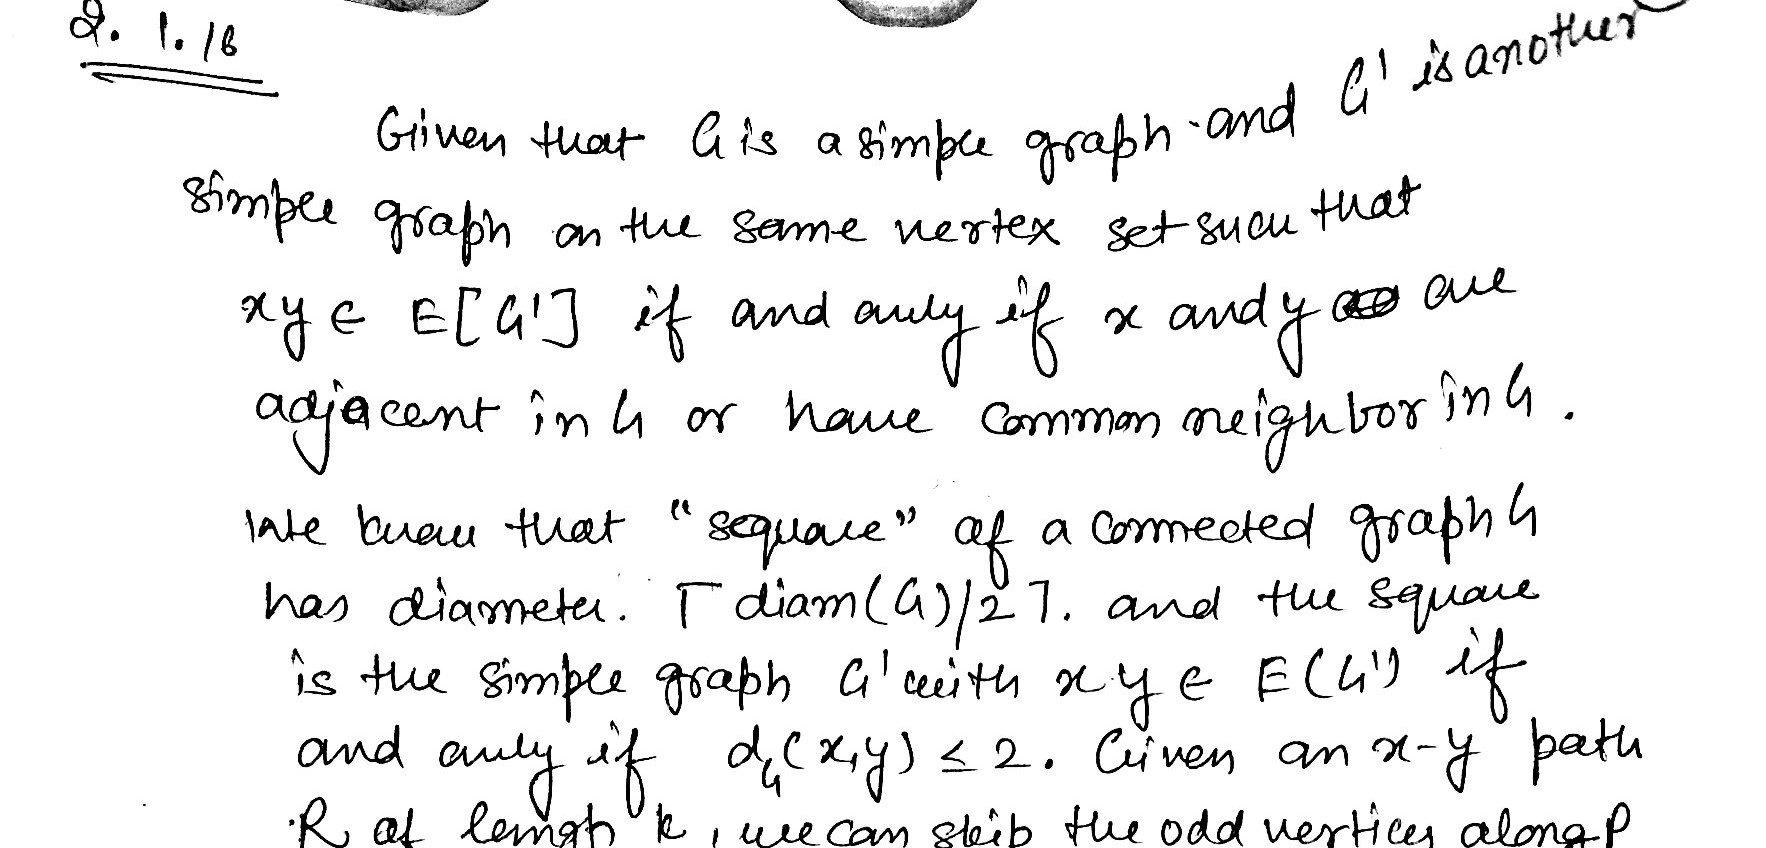 2.1.18
Given that G is a simple graph and G' is another
simple graph on the same vertex set such that
xy ∈ E[G'] if and only if x and y are
adjacent in G or have common neighbor in G.
We know that "sequare" of a connected graph G
has diameter. ⌈diam(G)/2⌉. and the square
is the simple graph G' with xy ∈ E(G') if
and only if d_G(x,y) ≤ 2. Given an x-y path
R of length k, we can skip the odd vertices along P